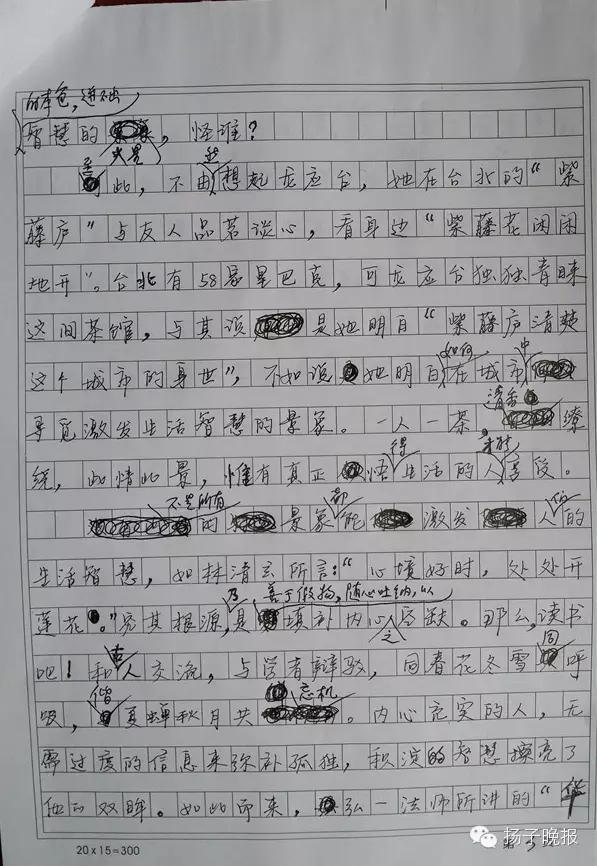 的本色,迸不出
智慧的火星,怪谁?
至此,不由我想起龙应台,她在台北的“紫
藤庐”与友人品茗谈心,看身边“紫藤花闲闲
地开”。台北有58家星巴克,可龙应台独独青睐
这间茶馆,与其说是她明白“紫藤庐清楚
这个城市的身世”,不如说她明白如何在城市中
寻觅激发生活智慧的景象。一人一茶。清香缭
绕,此情此景,惟有真正悟得生活的人才能享受。
不是所有的景象都能激发人们的
生活智慧,如林清玄所言:“心境好时,处处开
莲花。”究其根源,乃是善于假物,随心吐纳,以填补内心之匮缺。那么,读书
吧!和古人交流,与学者辩驳,同春花冬雪同呼
吸,偕夏蝉秋月共忘机。内心充实的人,无
需过度的信息来弥补孤独,积淀的智慧擦亮了
他的双眸。如此而来,弘一法师所讲的“华
20×15=300
第3
扬子晚报